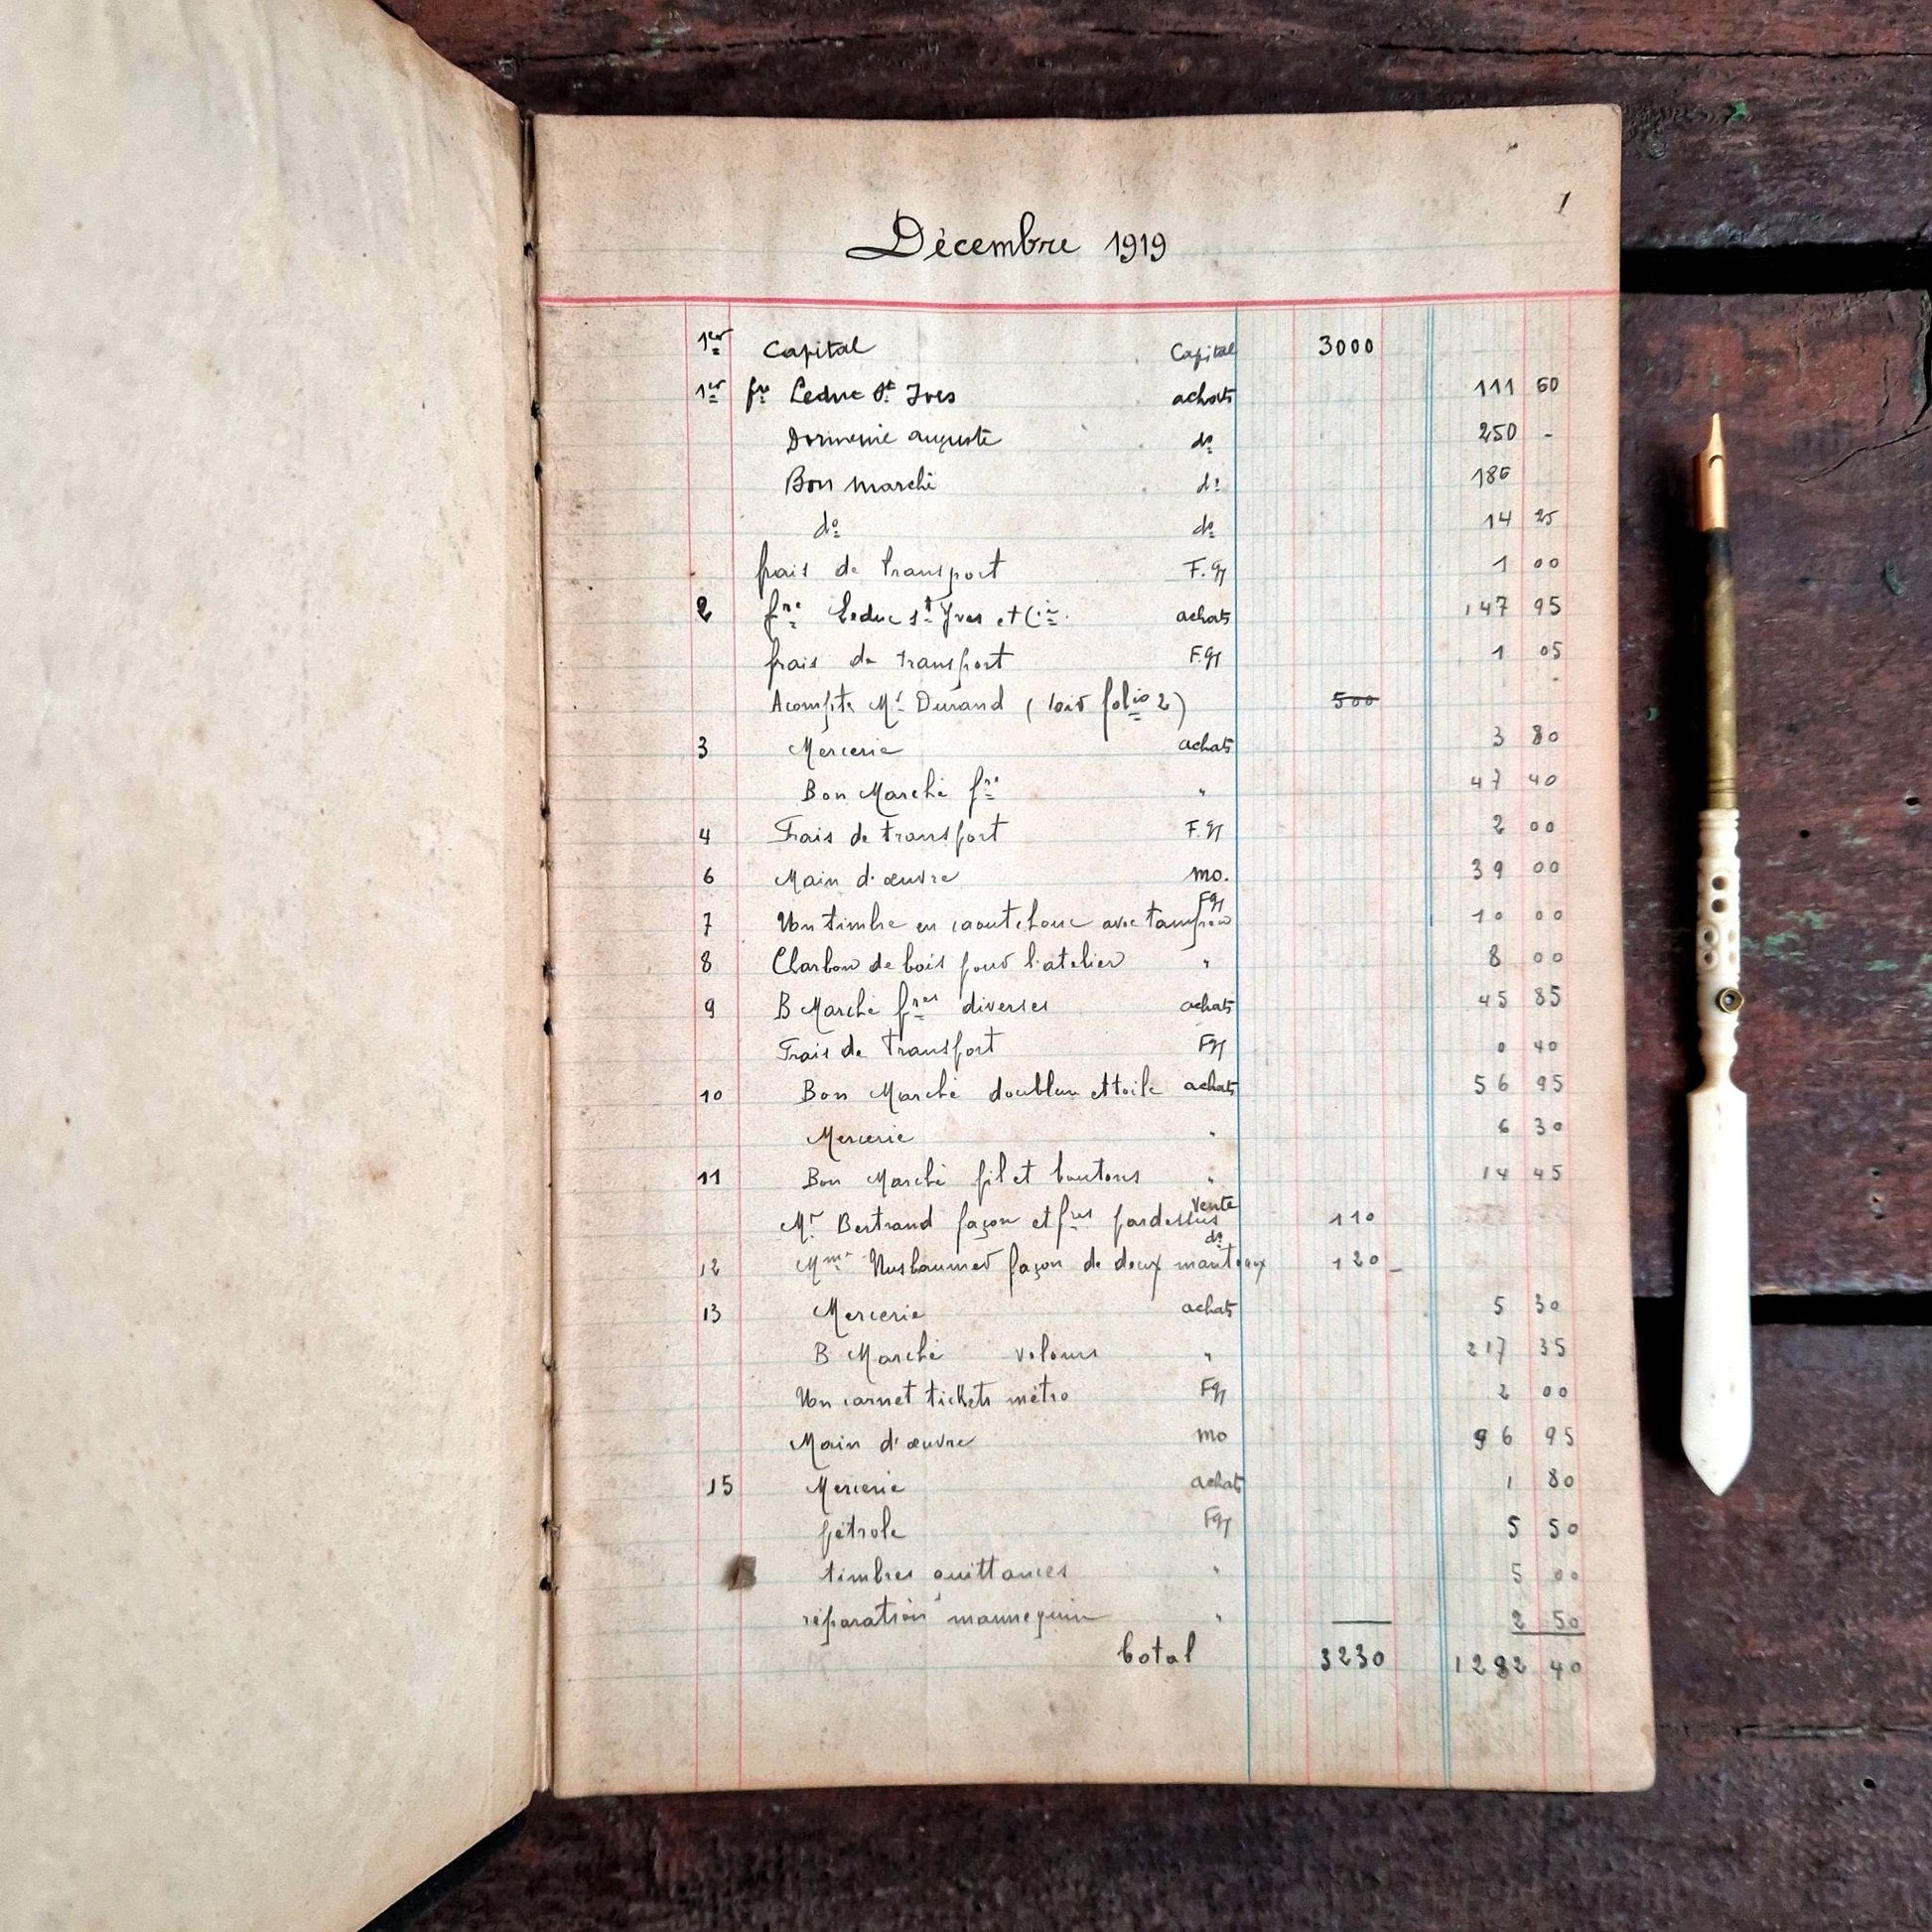 1
Décembre 1919
1er Capital Capital 3000
1er fre Leduc St Yves achats 111 60
Dormeuie auguste do 250 -
Bon marché do 185
do do 14 25
frais de transport F.gx 1 00
2 fre Leduc St Yves et Cie achats 147 95
frais de transport F.gx 1 05
Acompte Mr Durand (voir folio 2) 500
3 Mercerie achats 3 80
Bon Marché fre " 47 40
4 Frais de transport F.gx 2 00
6 Main d'œuvre mo. 39 00
7 Un timbre en caoutchouc avec tampon Fgx 10 00
8 Charbon de bois pour l'atelier " 8 00
9 B Marché fres diverses achats 45 85
Frais de Transport Fgx 0 40
10 Bon Marché doublure et toile achats 56 95
Mercerie " 6 30
11 Bon Marché fil et boutons " 14 45
Mr Bertrand façon et fres pardessus vente 110
12 Mme Nusbaumer façon de deux manteaux do 120 -
13 Mercerie achats 5 30
B Marché velours " 217 35
Un carnet tickets métro Fgx 2 00
Main d'œuvre mo 96 95
15 Mercerie achat 1 80
pétrole Fgx 5 50
timbres quittances " 5 00
réparation mannequin " 2 50
total 3230 1282 40